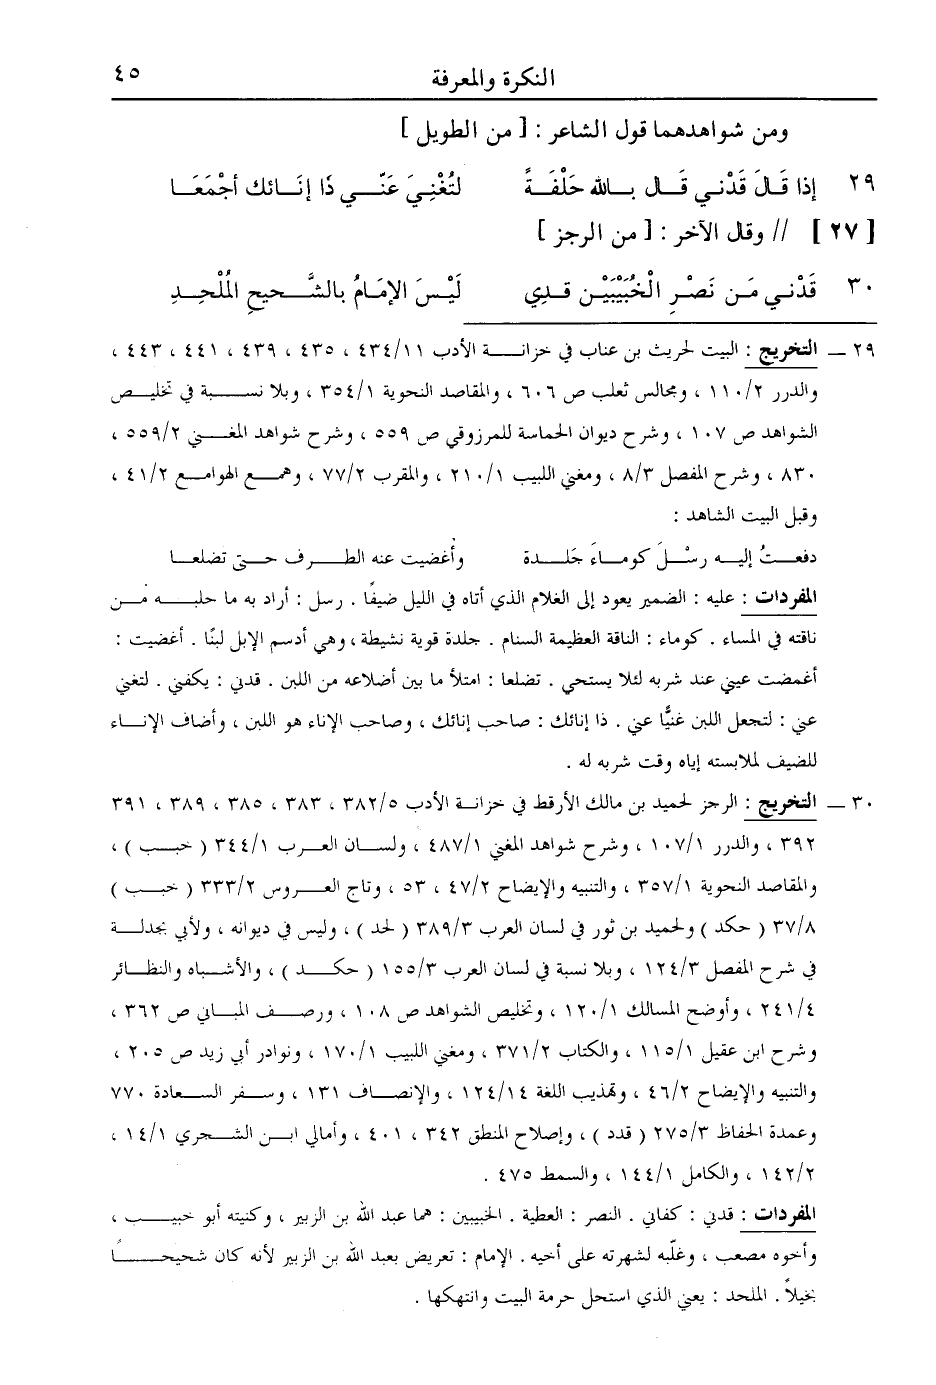 النكرة والمعرفة ٤٥
ومن شواهدهما قول الشاعر : [ من الطويل ]
٢٩ إذا قَالَ قَدْني قَال بـالله حَلْفَـةً لتُغْنِيَ عَنّـي ذَا إنَـائك أجْمَعَـا
[ ٢٧ ] // وقال الآخر : [ من الرجز ]
٣٠ قَدْنـي مَـن نَصْـرِ الْخُبَيْبَيْـن قـدِي لَيْـسَ الإمَـامُ بالشَّـحيحِ المُلْحِـدِ
٢٩ ــ التخريج : البيت لحريث بن عناب في خزانـة الأدب ٤٣٤/١١ ، ٤٣٥ ، ٤٣٩ ، ٤٤١ ، ٤٤٣ ،
والدرر ١١٠/٢ ، ومجالس ثعلب ص ٦٠٦ ، والمقاصد النحوية ٣٥٤/١ ، وبلا نسـبة في تخليـص
الشواهد ص ١٠٧ ، وشرح ديوان الحماسة للمرزوقي ص ٥٥٩ ، وشرح شواهد المغـني ٥٥٩/٢ ،
٨٣٠ ، وشرح المفصل ٨/٣ ، ومغني اللبيب ٢١٠/١ ، والمقرب ٧٧/٢ ، وهمـع الهوامـع ٤١/٢ ،
وقبل البيت الشاهد :
دفعـتُ إليـه رسْـلَ كومـاءَ جَلـدة وأغضيت عنه الطـرف حـتى تضلعـا
المفردات : عليه : الضمير يعود إلى الغلام الذي أتاه في الليل ضيفًا . رسل : أراد به ما حلبـه مـن
ناقته في المساء . كوماء : الناقة العظيمة السنام . جلدة قوية نشيطة ، وهي أدسم الإبل لبنًا . أغضيت :
أغمضت عيني عند شربه لئلا يستحي . تضلعا : امتلأ ما بين أضلاعه من اللبن . قدني : يكفني . لتغني
عني : لتجعل اللبن غنيًّا عني . ذا إنائك : صاحب إنائك ، وصاحب الإناء هو اللبن ، وأضاف الإنـاء
للضيف لملابسته إياه وقت شربه له .
٣٠ ــ التخريج : الرجز لحميد بن مالك الأرقط في خزانـة الأدب ٣٨٢/٥ ، ٣٨٣ ، ٣٨٥ ، ٣٨٩ ، ٣٩١
٣٩٢ ، والدرر ١٠٧/١ ، وشرح شواهد المغني ٤٨٧/١ ، ولسـان العـرب ٣٤٤/١ ( خبـب ) ،
والمقاصد النحوية ٣٥٧/١ ، والتنبيه والإيضاح ٤٧/٢ ، ٥٣ ، وتاج العـروس ٣٣٣/٢ ( خبـب )
٣٧/٨ ( حكد ) ولحميد بن ثور في لسان العرب ٣٨٩/٣ ( لحد ) ، وليس في ديوانه ، ولأبي بجدلـة
في شرح المفصل ١٢٤/٣ ، وبلا نسبة في لسان العرب ١٥٥/٣ ( حكـد ) ، والأشـباه والنظـائر
٢٤١/٤ ، وأوضح المسالك ١٢٠/١ ، وتخليص الشواهد ص ١٠٨ ، ورصـف المبـاني ص ٣٦٢ ،
وشرح ابن عقيل ١١٥/١ ، والكتاب ٣٧١/٢ ، ومغني اللبيب ١٧٠/١ ، ونوادر أبي زيد ص ٢٠٥ ،
والتنبيه والإيضاح ٤٦/٢ ، وتهذيب اللغة ١٢٤/١٤ ، والإنصـاف ١٣١ ، وسـفر السـعادة ٧٧٠
وعمدة الحفاظ ٢٧٥/٣ ( قدد ) ، وإصلاح المنطق ٣٤٢ ، ٤٠١ ، وأمالي ابـن الشـجري ١٤/١ ،
١٤٢/٢ ، والكامل ١٤٤/١ ، والسمط ٤٧٥ .
المفردات : قدني : كفاني . النصر : العطية . الخبيبين : هما عبد الله بن الزبير ، وكنيته أبو خبيـب ،
وأخوه مصعب ، وغلّبه لشهرته على أخيه . الإمام : تعريض بعبد الله بن الزبير لأنه كان شحيحـاً
بخيلاً . الملحد : يعني الذي استحل حرمة البيت وانتهكها .